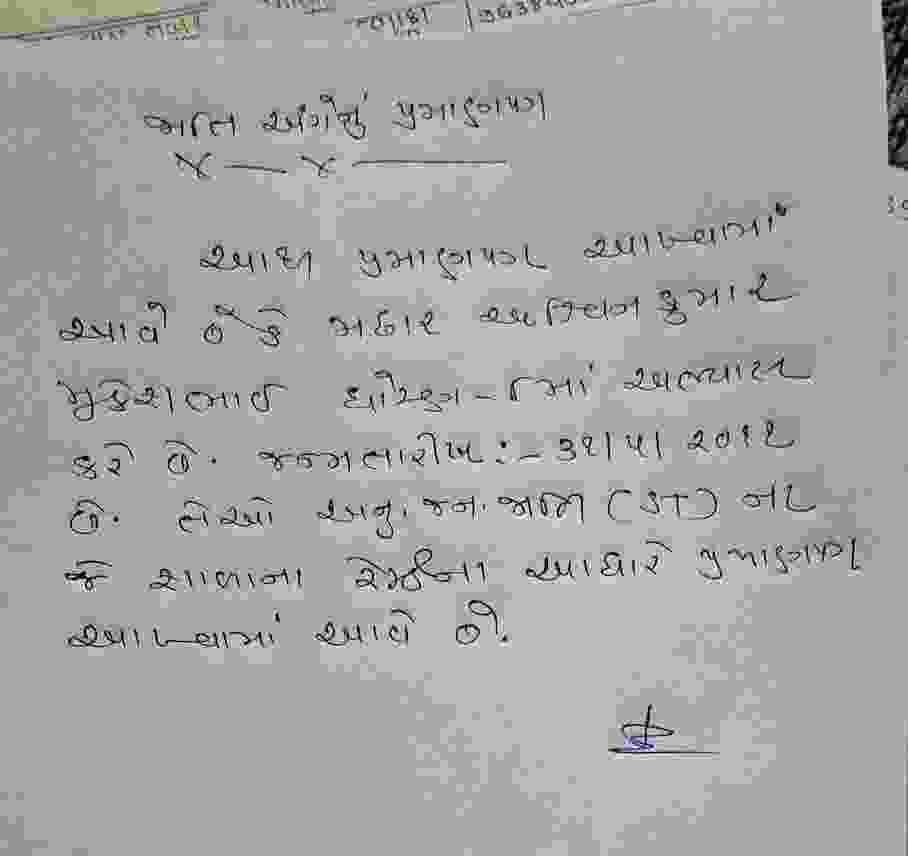 જાતિ અંગેનું પ્રમાણપત્ર
આથી પ્રમાણપત્ર આપવામાં
આવે છે કે મહાર અશ્વિનકુમાર
મુકેશભાઈ ધોરણ - ૮માં અભ્યાસ
કરે છે. જન્મતારીખ :- ૩૧/૫/ ૨૦૧૨
છે. તેઓ અનુ. જન. જાતિ (ST)
જે શાળાના આધારે પ્રમાણપત્ર
આપવામાં આવે છે.